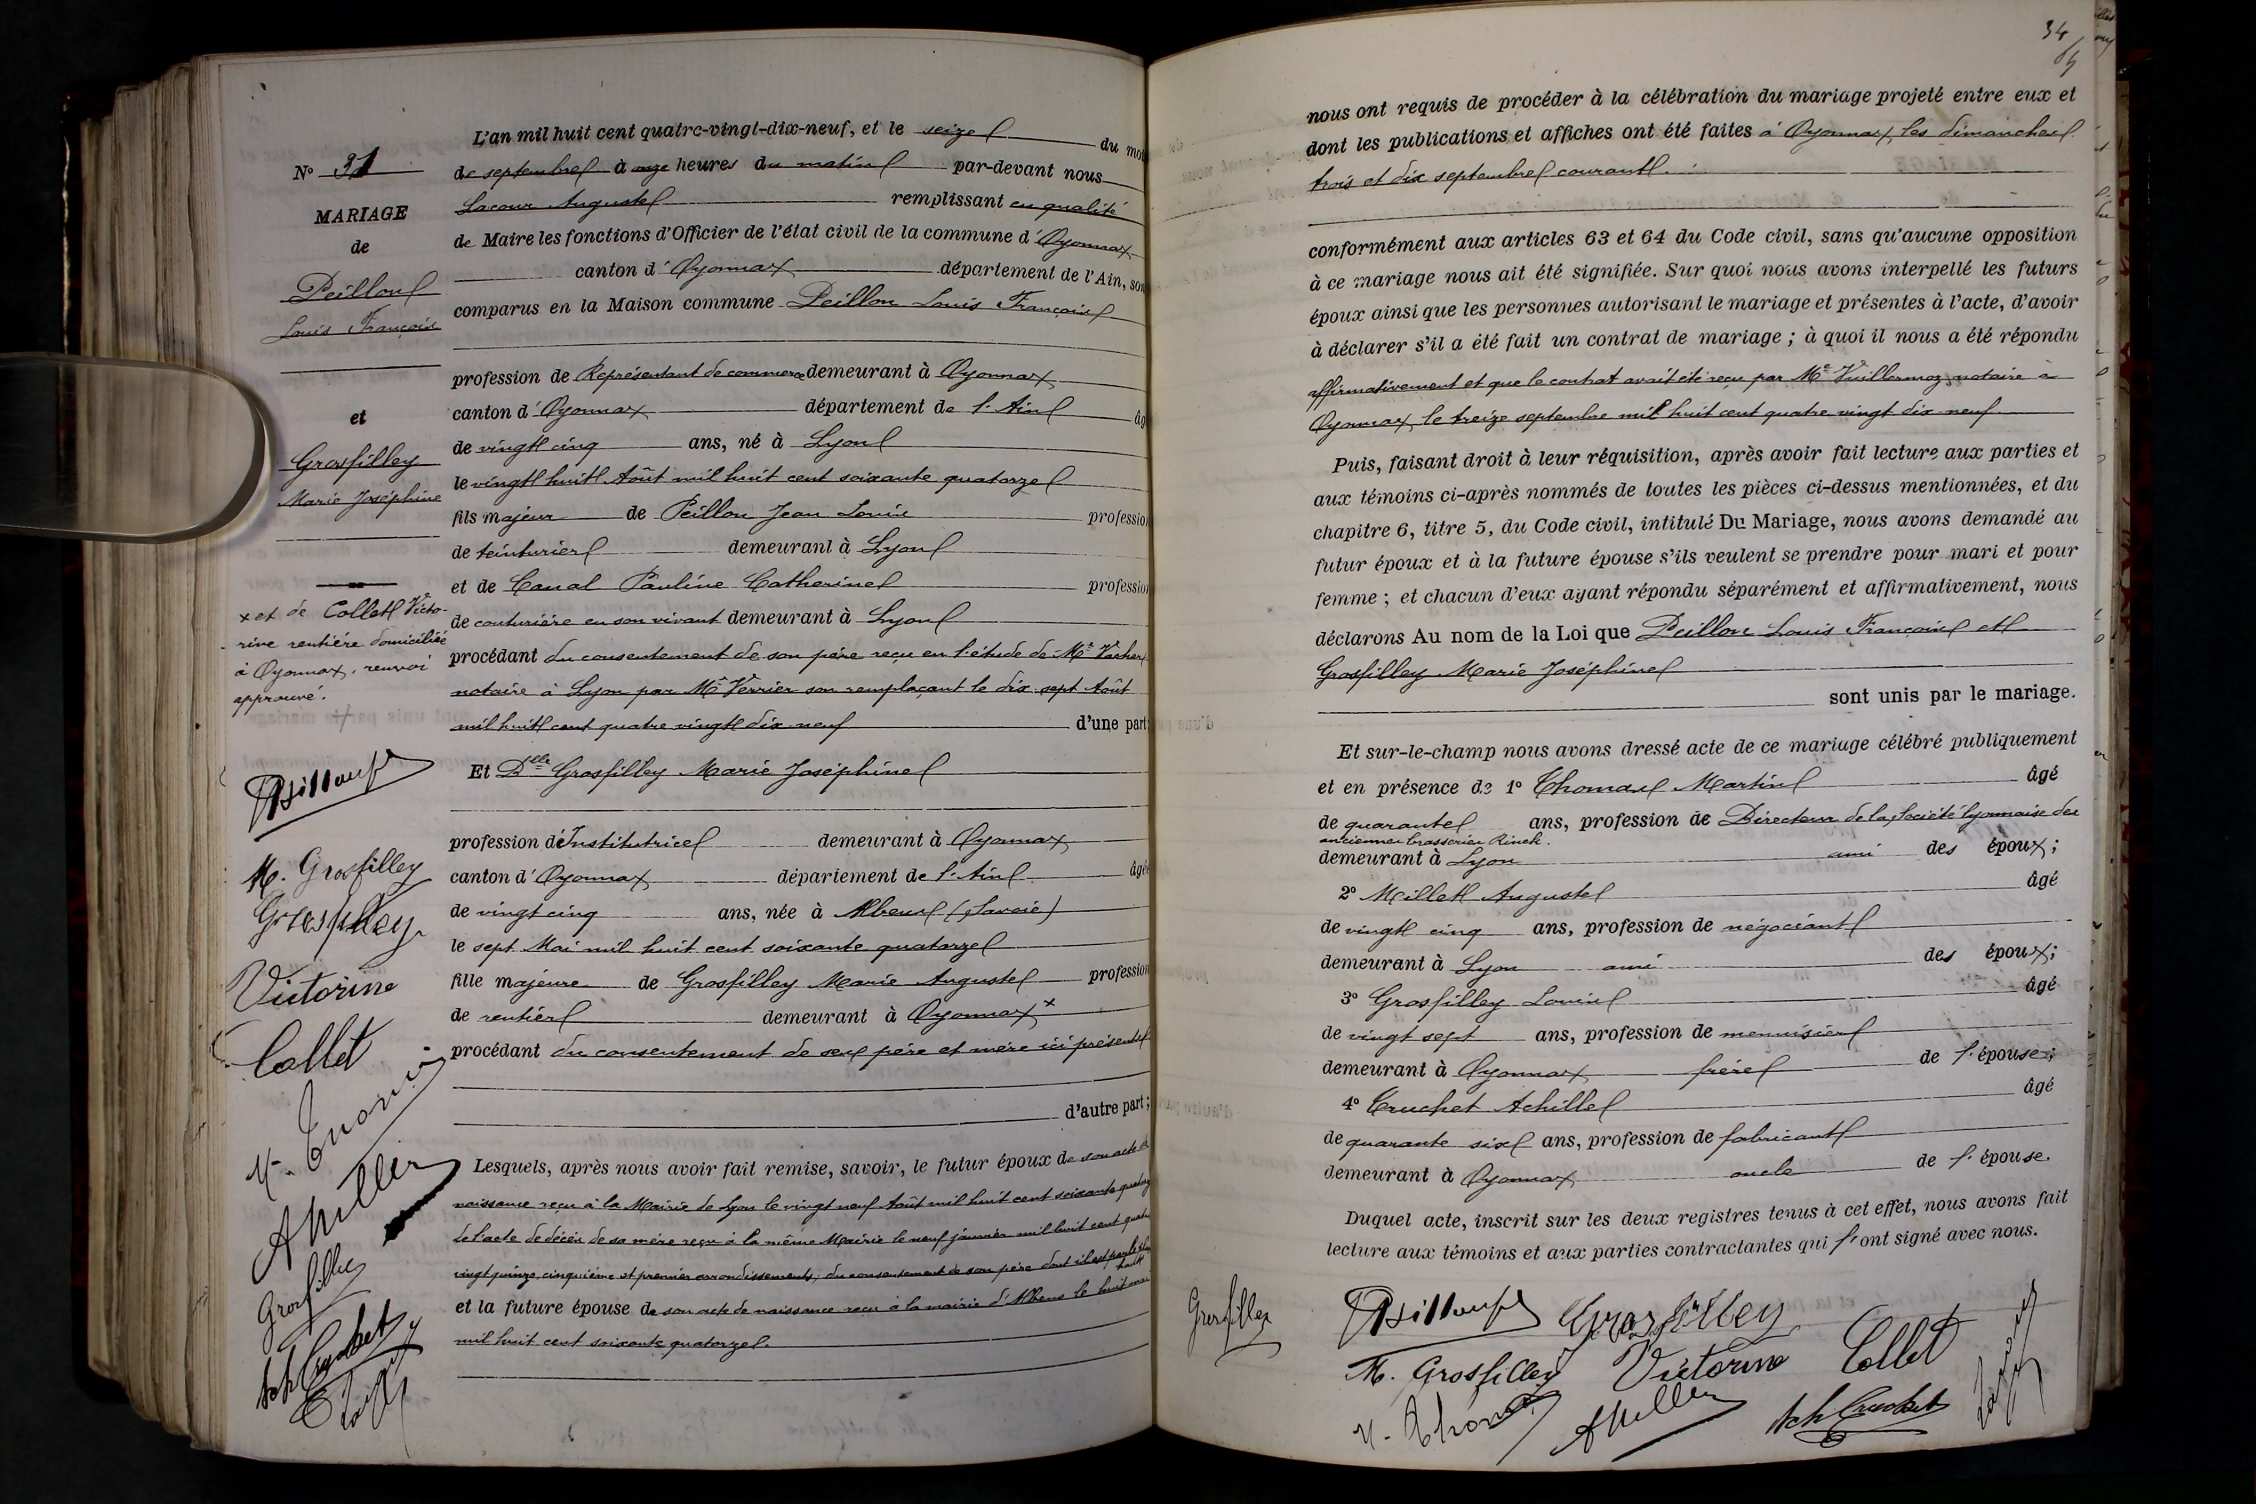 N° 31
MARIAGE
de
Peillon
Louis François
et
Grosfilley
Marie Joséphine
x et de Collet Victo-
rine rentière domiciliée
à Oyonnax, renvoi
approuvé.
M. Grosfilley
Grosfilley
Victorine
Collet
Grosfilley
Ach Cruchet
L'an mil huit cent quatre-vingt-dix-neuf, et le seize du moi
de septembre à onze heures du matin par-devant nous
Lacour Auguste remplissant en qualité
de Maire les fonctions d'Officier de l'état civil de la commune d'Oyonnax
canton d'Oyonnax département de l'Ain, son
comparus en la Maison commune Peillon Louis François
profession de Représentant de commerce demeurant à Oyonnax
canton d'Oyonnax département de l'Ain âg
de vingt cinq ans, né à Lyon
le vingt huit Août mil huit cent soixante quatorze
fils majeur de Peillon Jean Louis profession
de teinturier demeurant à Lyon
et de Canal Pauline Catherine profession
de couturière en son vivant demeurant à Lyon
procédant du consentement de son père reçu en l'étude de Me Vacher
notaire à Lyon par Me Verrier son remplaçant le dix sept Août
mil huit cent quatre vingt dix neuf d'une part;
Et Dlle Grosfilley Marie Joséphine
profession d'Institutrice demeurant à Oyonnax
canton d'Oyonnax département de l'Ain âgée
de vingt cinq ans, née à Albens (Savoie)
le sept Mai mil huit cent soixante quatorze
fille majeure de Grosfilley Marie Auguste profession
de rentier demeurant à Oyonnax x
procédant du consentement de ses père et mère ici présents
d'autre part;
Lesquels, après nous avoir fait remise, savoir, le futur époux de son acte de
naissance reçu à la Mairie de Lyon le vingt neuf Août mil huit cent soixante quatorze
de l'acte de décès de sa mère reçu à la même Mairie le neuf janvier mil huit cent quatre
vingt quinze, cinquième et premier arrondissements, du consentement de son père dont il est parlé plus
haut
et la future épouse de son acte de naissance reçu à la mairie d'Albens le huit mai
mil huit cent soixante quatorze.
34
nous ont requis de procéder à la célébration du mariage projeté entre eux et
dont les publications et affiches ont été faites à Oyonnax, les dimanches
trois et dix septembre courant.
conformément aux articles 63 et 64 du Code civil, sans qu'aucune opposition
à ce mariage nous ait été signifiée. Sur quoi nous avons interpellé les futurs
époux ainsi que les personnes autorisant le mariage et présentes à l'acte, d'avoir
à déclarer s'il a été fait un contrat de mariage ; à quoi il nous a été répondu
affirmativement et que le contrat avait été reçu par Me Vuillermoz, notaire à
Oyonnax, le treize septembre mil huit cent quatre vingt dix neuf
Puis, faisant droit à leur réquisition, après avoir fait lecture aux parties et
aux témoins ci-après nommés de toutes les pièces ci-dessus mentionnées, et du
chapitre 6, titre 5, du Code civil, intitulé Du Mariage, nous avons demandé au
futur époux et à la future épouse s'ils veulent se prendre pour mari et pour
femme ; et chacun d'eux ayant répondu séparément et affirmativement, nous
déclarons Au nom de la Loi que Peillon Louis François et
Grosfilley Marie Joséphine
sont unis par le mariage.
Et sur-le-champ nous avons dressé acte de ce mariage célébré publiquement
et en présence de 1° Thomas Martin âgé
de quarante ans, profession de Directeur de la Société lyonnaise des
anciennes brasseries Rinck.
demeurant à Lyon ami des époux;
2° Millet Auguste âgé
de vingt cinq ans, profession de négociant
demeurant à Lyon ami des époux;
3° Grosfilley Louis âgé
de vingt sept ans, profession de menuisier
demeurant à Oyonnax frère de l'épouse;
4° Cruchet Achille âgé
de quarante six ans, profession de fabricant
demeurant à Oyonnax oncle de l'épouse.
Duquel acte, inscrit sur les deux registres tenus à cet effet, nous avons fait
lecture aux témoins et aux parties contractantes qui l'ont signé avec nous.
Grosfilley
Grosfilley
M. Grosfilley Victorine Collet
Ach Cruchet